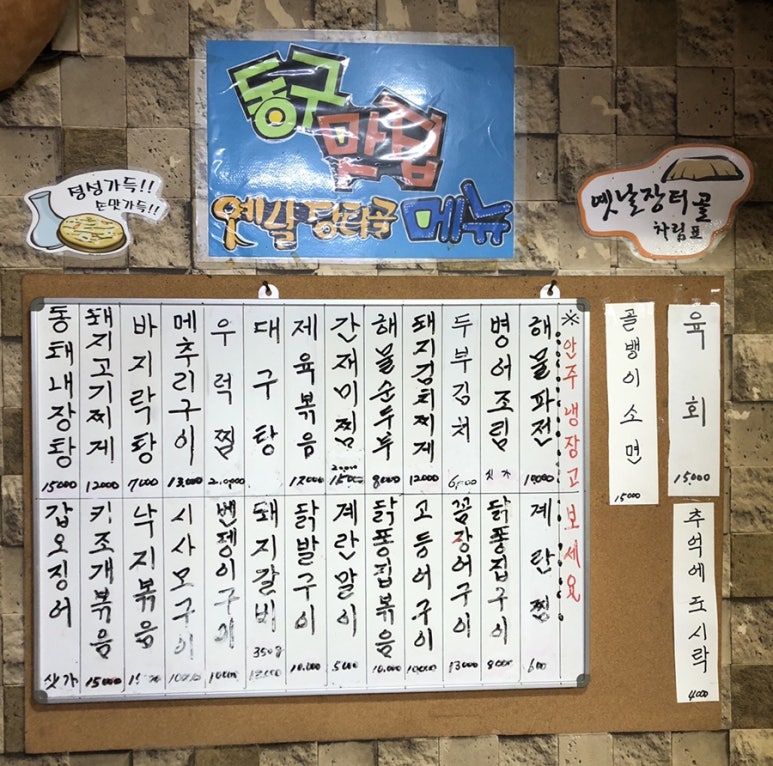 동구
맛집
옛날장터골 메뉴
정성가득!!
손맛가득!!
옛날장터골
차림표
동태내장탕 15000
돼지고기찌게 12000
바지락탕 7000
메추리구이 13,000
우럭찜 20,000
대구탕
제육볶음 12000
간재미찜 20,000 15000
해물순두부 8000
돼지김치찌게 12000
두부김치
병어조림 싯가
해물파전 10000
※안주 냉장고 보세요
갑오징어 싯가
키조개볶음 15000
낙지볶음
시사모구이
벤뎅이구이 10000
돼지갈비 350g 12000
닭발구이 10.000
계란말이 5000
닭똥집볶음 10,000
고등어구이 10000
꼼장어구이 13000
닭똥집구이 8000
계란찜
골뱅이소면 15000
육회 15,000
추억에 도시락 4000